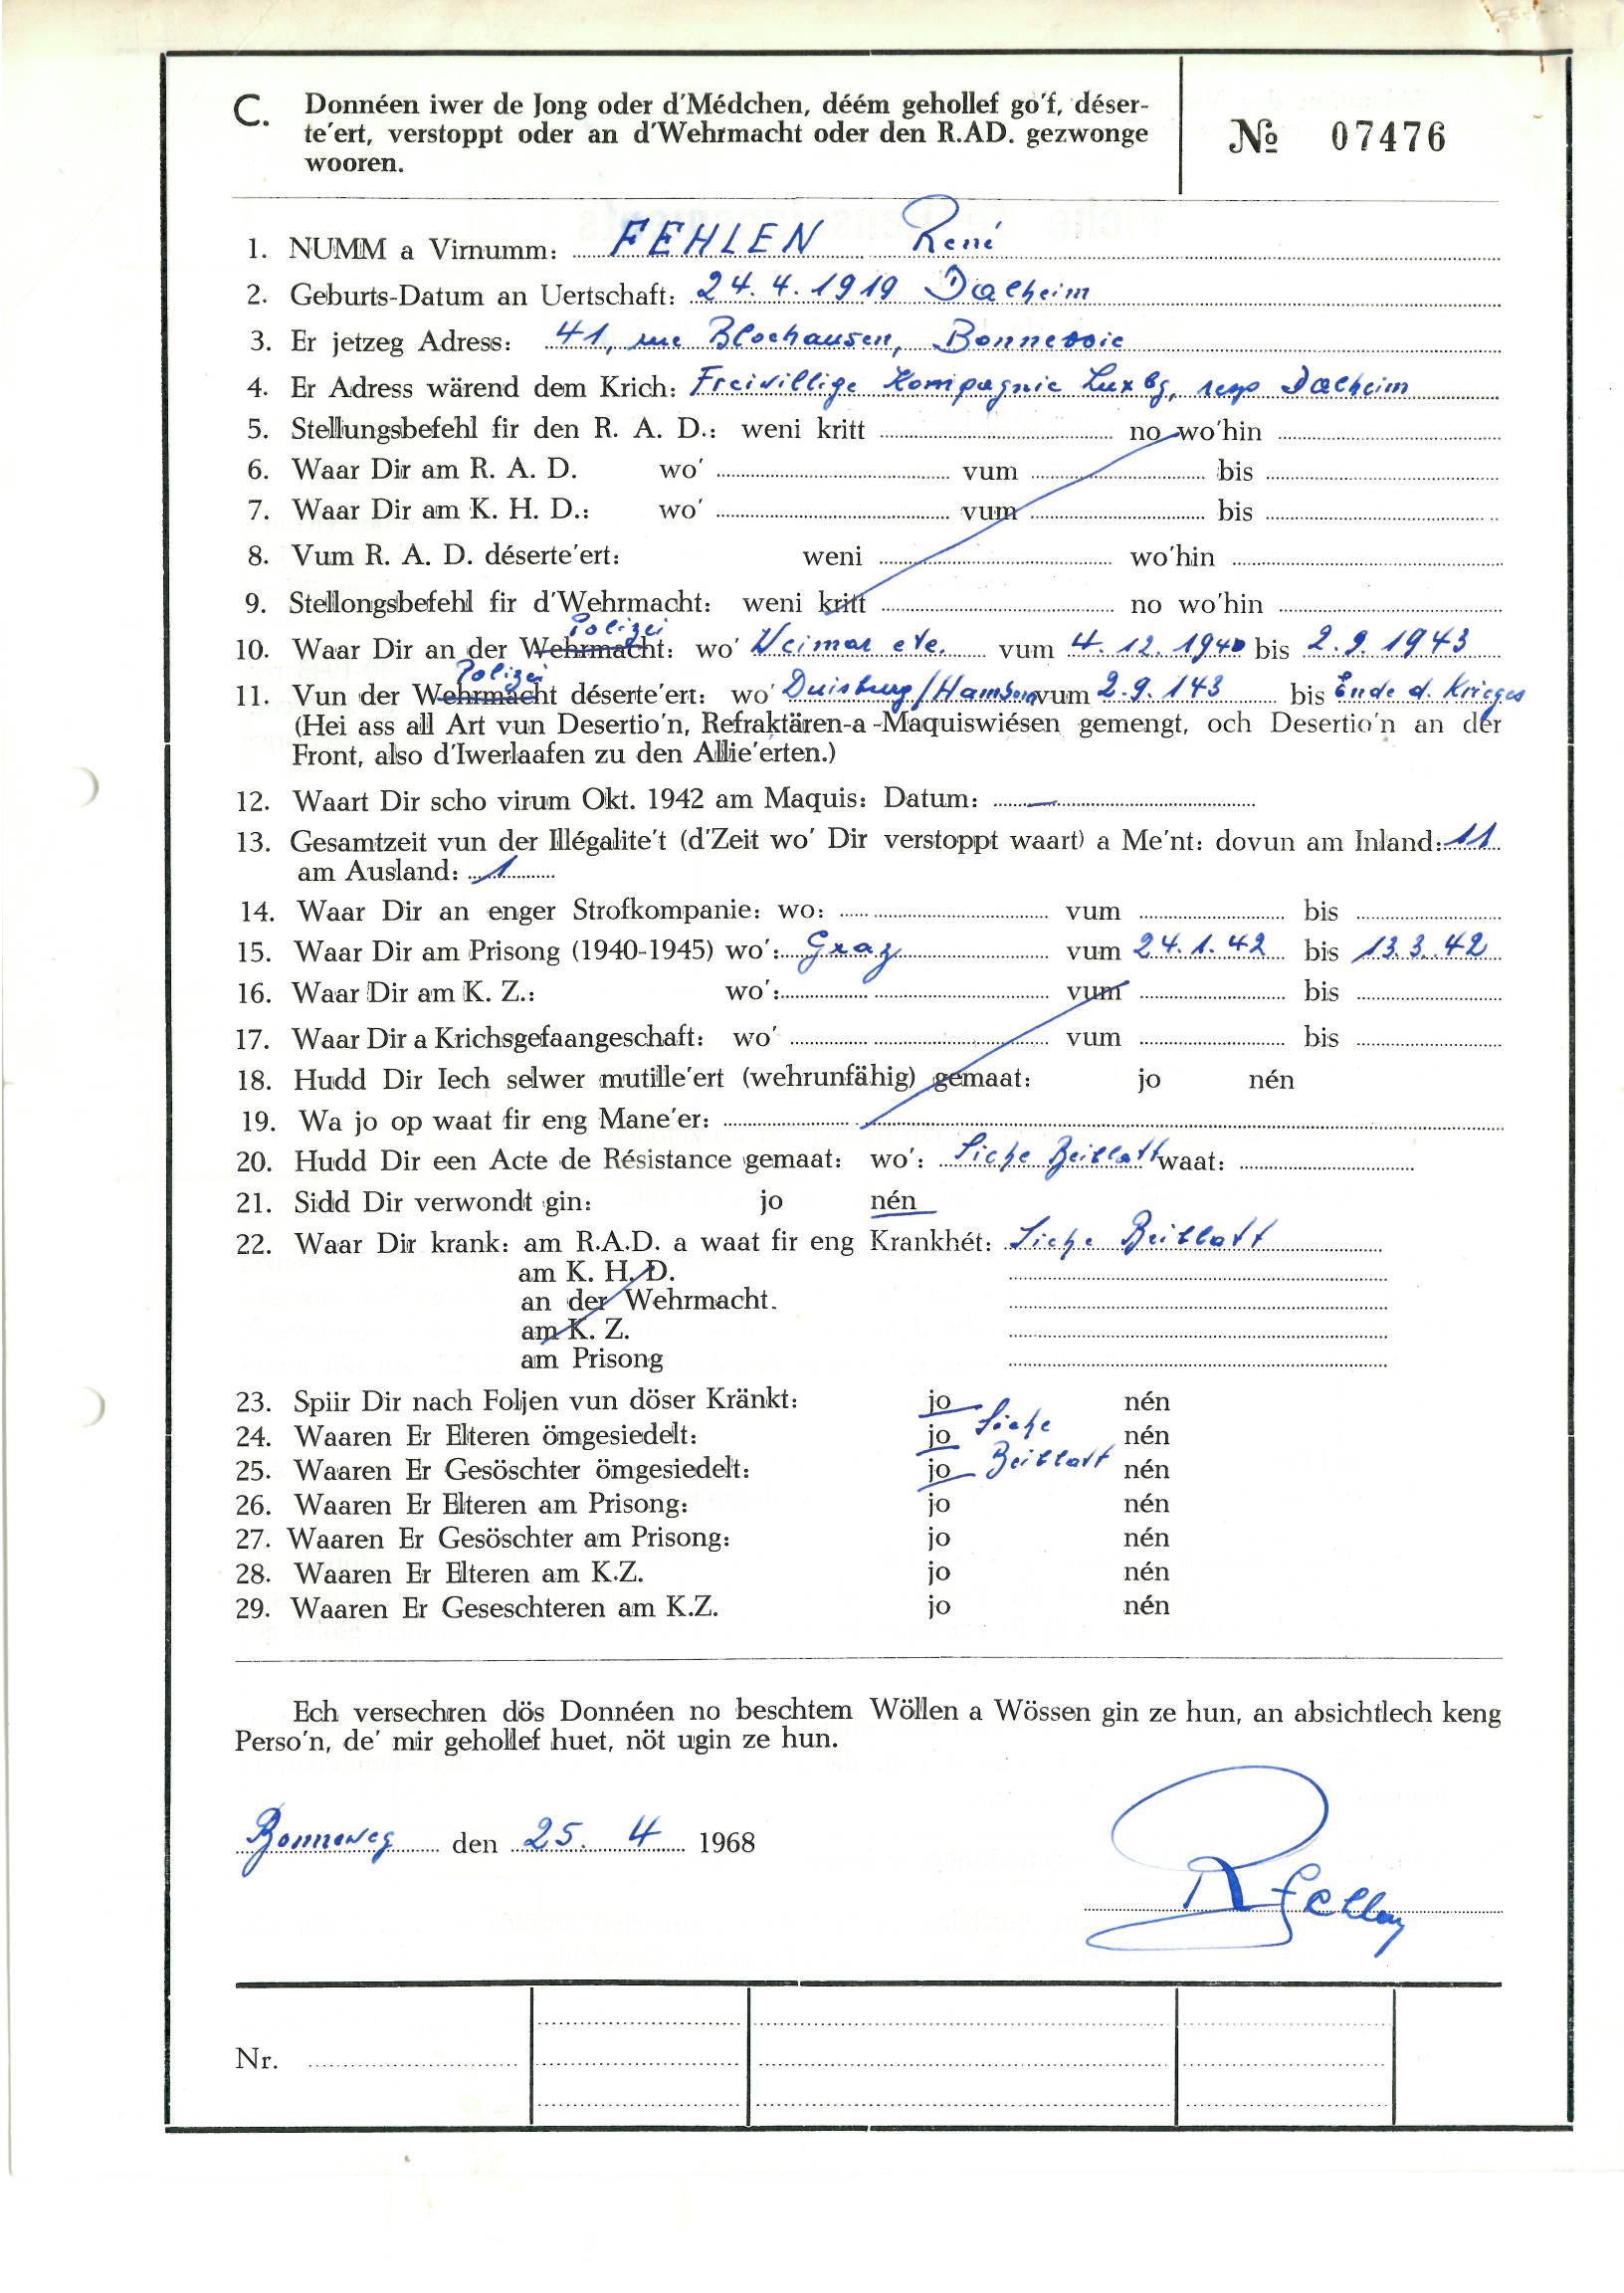 C. Donnéen iwer de Jong oder d'Médchen, déém gehollef go'f, déser-
te'ert, verstoppt oder an d'Wehrmacht oder den R.AD. gezwonge
wooren.
№ 07476
1. NUMM a Virnumm: FEHLEN René
2. Geburts-Datum an Uertschaft: 24.4.1919 Dalheim
3. Er jetzeg Adress: 41, rue Blochausen, Bonnevoie
4. Er Adress wärend dem Krich: Freiwillige Kompagnie Luxbg, resp Dalheim
5. Stellungsbefehl fir den R. A. D.: weni kritt no wo'hin
6. Waar Dir am R. A. D. wo' vum bis
7. Waar Dir am K. H. D.: wo' vum bis
8. Vum R. A. D. déserte'ert: weni wo'hin
9. Stellongsbefehl fir d'Wehrmacht: weni kritt no wo'hin
Polizei
10. Waar Dir an der Wehrmacht: wo' Weimar etc. vum 4.12.1940 bis 2.9.1943
Polizei
11. Vun der Wehrmacht déserte'ert: wo' Duisburg/Hamborn vum 2.9.143 bis Ende d. Krieges
(Hei ass all Art vun Desertio'n, Refraktären-a-Maquiswiésen gemengt, och Desertio'n an der
Front, also d'Iwerlaafen zu den Allie'erten.)
12. Waart Dir scho virum Okt. 1942 am Maquis: Datum: —
13. Gesamtzeit vun der Illégalite't (d'Zeit wo' Dir verstoppt waart) a Me'nt: dovun am Inland: 11
am Ausland: 1
14. Waar Dir an enger Strofkompanie: wo: vum bis
15. Waar Dir am Prisong (1940-1945) wo': Graz vum 24.1.42 bis 13.3.42
16. Waar Dir am K. Z.: wo': vum bis
17. Waar Dir a Krichsgefaangeschaft: wo' vum bis
18. Hudd Dir Iech selwer mutille'ert (wehrunfähig) gemaat: jo nén
19. Wa jo op waat fir eng Mane'er:
20. Hudd Dir een Acte de Résistance gemaat: wo': Siehe Beiblatt waat:
21. Sidd Dir verwondt gin: jo nén
22. Waar Dir krank: am R.A.D. a waat fir eng Krankhét: Siehe Beiblatt
am K. H. D.
an der Wehrmacht.
am K. Z.
am Prisong
23. Spiir Dir nach Foljen vun döser Kränkt: jo nén
24. Waaren Er Elteren ömgesiedelt: jo Siehe nén
25. Waaren Er Gesöschter ömgesiedelt: jo Beiblatt nén
26. Waaren Er Elteren am Prisong: jo nén
27. Waaren Er Gesöschter am Prisong: jo nén
28. Waaren Er Elteren am K.Z. jo nén
29. Waaren Er Geseschteren am K.Z. jo nén
Ech versechren dös Donnéen no beschtem Wöllen a Wössen gin ze hun, an absichtlech keng
Perso'n, de' mir gehollef huet, nöt ugin ze hun.
Bonneweg den 25. 4 1968
R Fehlen
Nr.